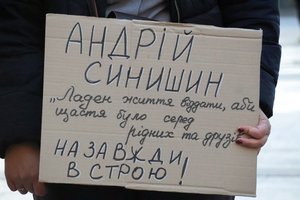 АНДРІЙ
СИНИШИН
„Ладен життя віддати, аби
щастя було серед
рідних та друзів
НАЗАВЖДИ
В СТРОЮ!